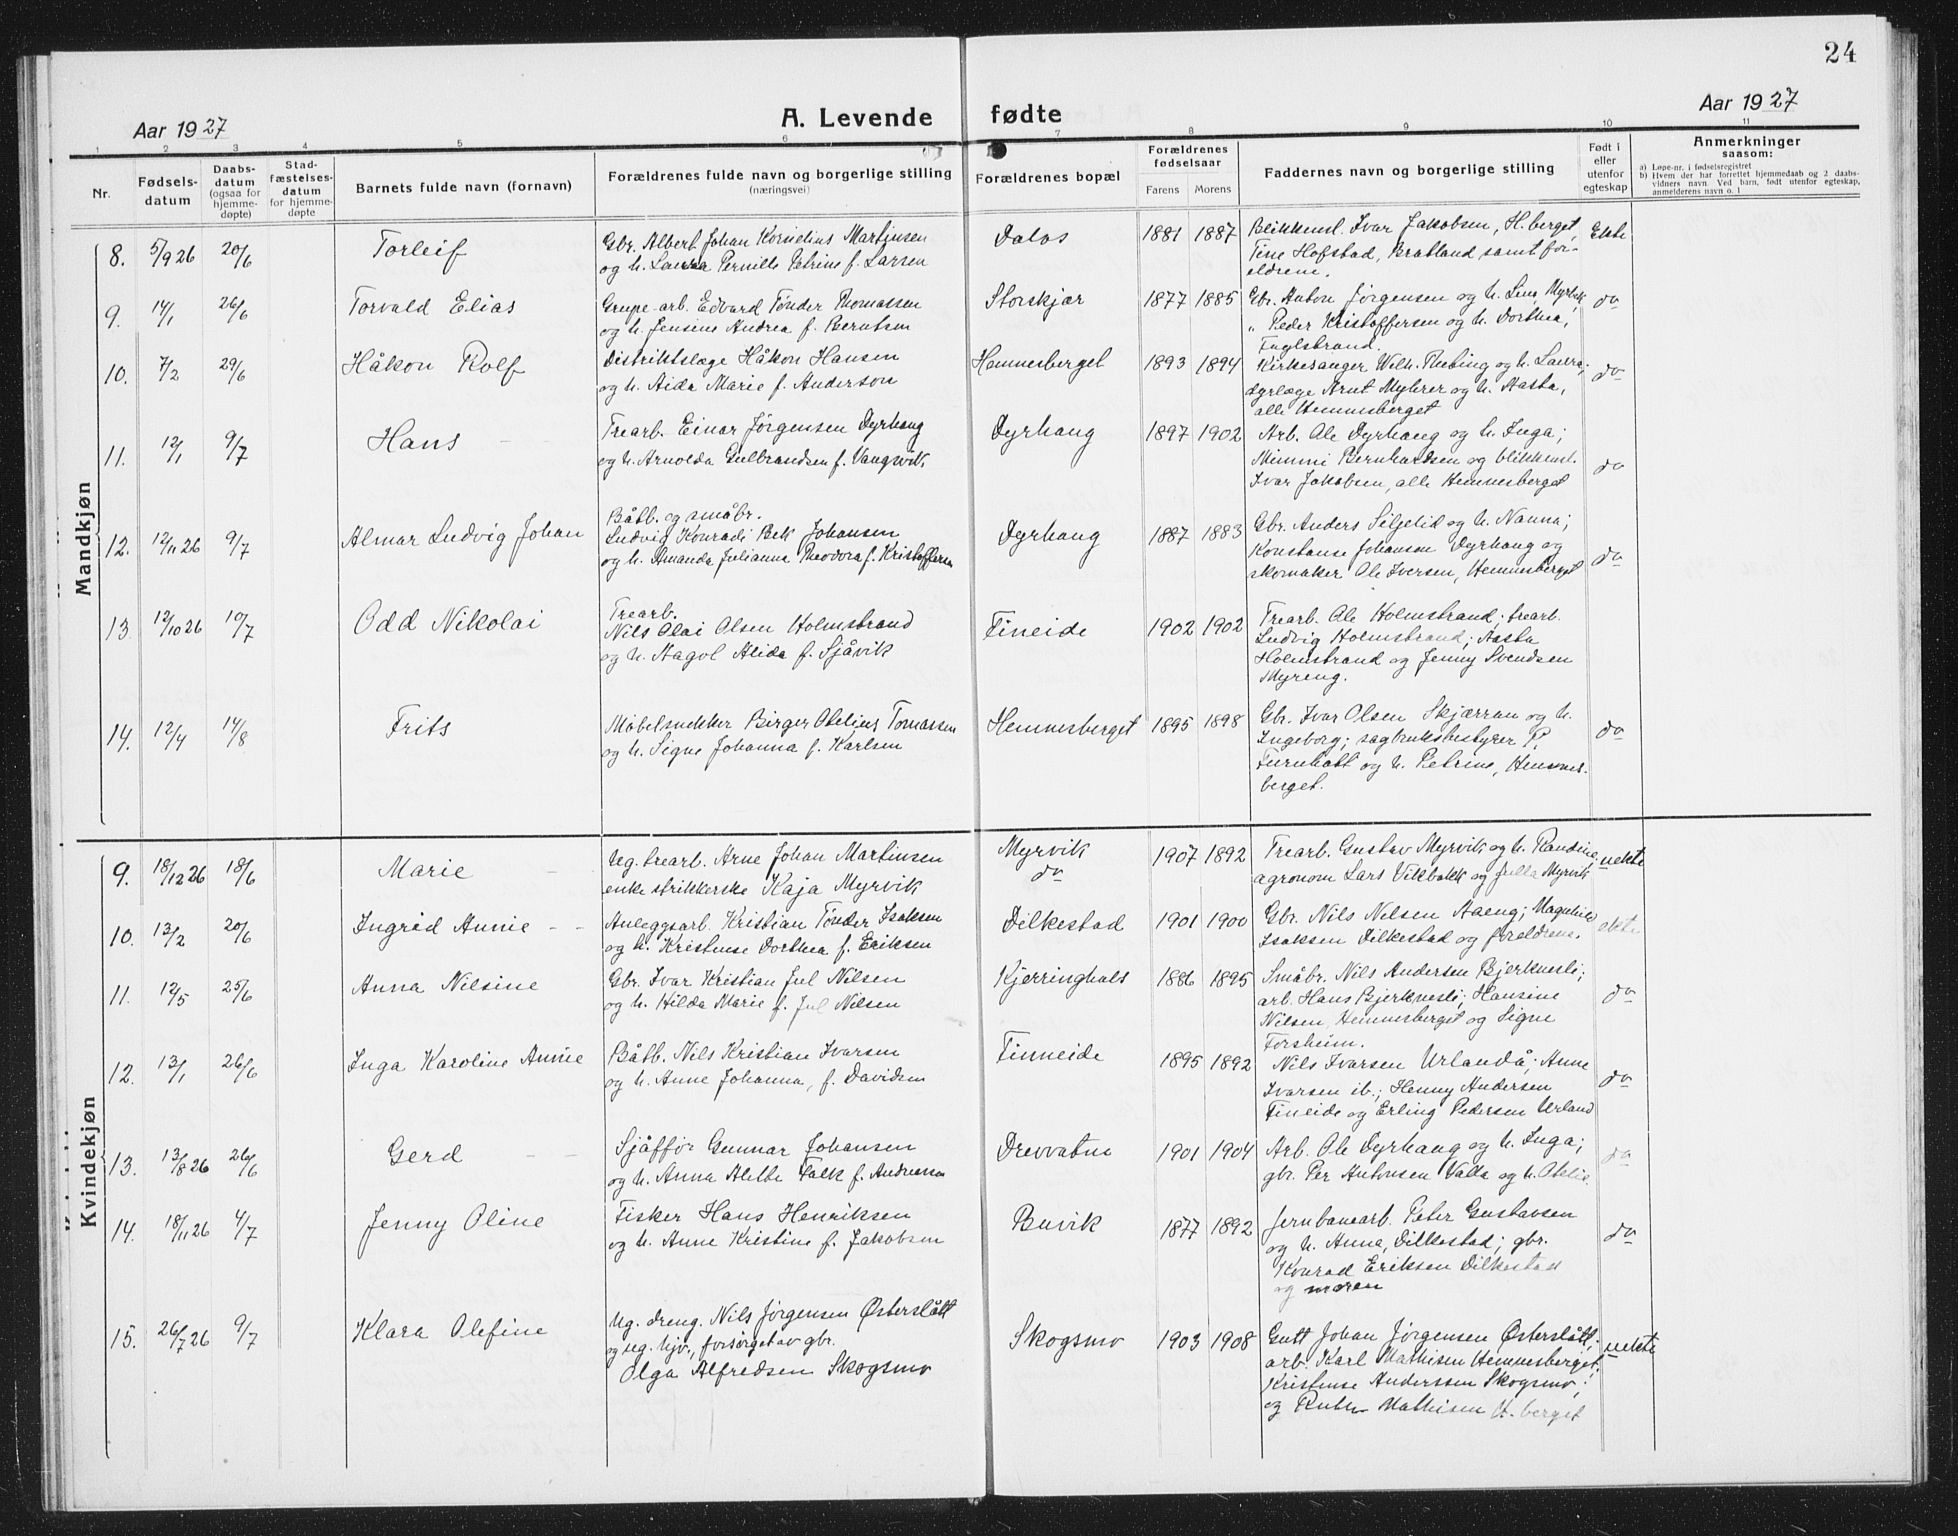 24
Aar 1927
A. Levende fødte
Aar 1927
1 2 3 4 5 6 7 8 9 10 11
Nr.
Fødsels-
datum
Daabs-
datum
(ogsaa for
hjemme-
døpte)
Stad-
fæstelses-
datum
for hjemme-
døpte
Barnets fulde navn (fornavn)
Forældrenes fulde navn og borgerlige stilling
(næringsvei)
Forældrenes bopæl
Forældrenes
fødselsaar
Farens Morens
Faddernes navn og borgerlige stilling
Født i
eller
utenfor
egteskap
Anmerkninger
saasom:
a) Løpe-nr. i fødselsregistret
b) Hvem der har forrettet hjemmedaab og 2 daabs-
vidners navn. Ved barn, født utenfor egteskap,
anmelderens navn o. l
Mandkjøn
8. 5/9 26 20/6 Torleif
Gbr. Albert Johan Kornelius Martinsen
og h. Laura Pernille Petrine f. Larsen
Dalos 1881 1887
Blikkensl. Ivar Jakobsen, H.berget,
Tine Hofstad, Bratland samt for-
eldrene.
Ekte
9. 14/1 26/6 Torvald Elias
Grupe-arb. Edvard Tønder Thomassen
og h. Jensine Andrea f. Berntsen
Storskjær 1877 1885
Gbr. Anton Jørgensen og h. Lina, Myrvik
" Peder Kristoffersen og h. Dorthea,
Fuglstrand.
do
10. 7/2 29/6 Håkon Rolf
Distriktslæge Håkon Hansen
og h. Aida Marie f. Anderson
Hemnesberget 1893 1894
Kirkesanger Wilh. Thebing og h. Laura;
dyrlæge Arnt Myhrer og h. Aasta,
alle Hemnesberget
do
11. 12/1 9/7 Hans
Trearb. Einar Jørgensen Dyrhaug
og h. Arnolda Gulbrandsen f. Vangsvik
Dyrhaug 1897 1902
Arb. Ole Dyrhaug og h. Inga;
Mimmi Bernhardsen og blikkensl.
Ivar Jakobsen, alle Hemnesberget
do
12. 12/11 26 9/7 Almar Ludvig Johan
Båtb. og småbr.
Ludvig Konradi Bek Johansen
og h. Amanda Julianne Theodora f. Kristoffersen
Dyrhaug 1887 1883
Gbr. Anders Seljelid og h. Nanna;
Konstanse Johansen Dyrhaug og
skomaker Ole Iversen, Hemnesberget
do
13. 12/10 26 10/7 Odd Nikolai
Trearb.
Nils Olai Olsen Holmstrand
og h. Aagot Alida f. Sjåvik
Fineide 1902 1902
Trearb. Ole Holmstrand; trearb.
Ludvig Holmstrand; Aasta
Holmstrand og Jenny Svendsen
Myreng.
14. 12/4 14/8 Frits
Møbelsnekker Birger Otelius Tomassen
og h. Signe Johanna f. Karlsen
Hemnesberget 1895 1898
Gbr. Ivar Olsen Skjærran og h.
Ingeborg; sagbruksbestyrer P.
Furuhatt og h. Petrine, Hemnes-
berget.
do
Kvindekjøn
9. 18/12 26 18/6 Marie
Ug. trearb. Arne Johan Martinsen
enke strikkerske Kaja Myrvik
Myrvik
do
1907 1892
Trearb. Gustav Myrvik og h. Randine
agronom Lars Vikbakk og Julla Myrvik
uekte
10. 13/2 20/6 Ingrid Annie
Anleggsarb. Kristian Tønder Isaksen
og h. Kristense Dorthea f. Eriksen
Dilkestad 1901 1900
Gbr. Nils Nilsen Aaeng; Magnhild
Isaksen Dilkestad og foreldrene.
ekte
11. 12/5 25/6 Anna Nilsine
Gbr. Ivar Kristian Jul Nilsen
og h. Hilda Marie f. Jul Nilsen
Kjerringhals 1886 1895
Småbr. Nils Andersen Bjerknesli;
arb. Hans Bjerknesli; Hansine
Nilsen, Hemnesberget og Signe
Forsheim.
do
12. 13/1 26/6 Inga Karoline Annie
Båtb. Nils Kristian Ivarsen
og h. Anne Johanna, f. Davidsen
Finneide 1895 1892
Nils Ivarsen Urlandå; Anne
Ivarsen ib.; Henny Andersen
Fineide og Erling Pedersen Urland
do
13. 13/8 26 26/6 Gerd
Sjåffør Gunnar Johansen
og h. Anna Alethe Falk f. Andreassen
Drevvatne 1901 1904
Arb. Ole Dyrhaug og h. Inga;
gbr. Per Antonsen Valla og h. Otelie.
do
14. 18/11 26 4/7 Jenny Oline
Fisker Hans Henriksen
og h. Anne Kristine f. Jakobsen
Buvik 1877 1892
Jernbanearb. Peter Gustavsen
og h. Anna, Dilkestad; gbr.
Konrad Eriksen Dilkestad
og moren
do
15. 26/7 26 9/7 Klara Olefine
Ug. dreng. Nils Jørgensen Østerslått
og ug. hjv., forsørget av gbr.
Olga Alfredsen Skogsmo
Skogsmo 1903 1908
Gutt Johan Jørgensen Østerslått;
arb. Karl Mathisen Hemnesberget;
Kristense Anderssen Skogsmo;
og Ruth Mathisen H.berget
uekte